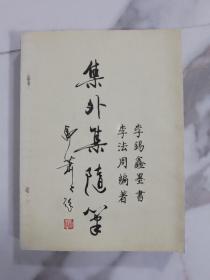 李錫鑫墨書
李法周編著
集外集隨筆